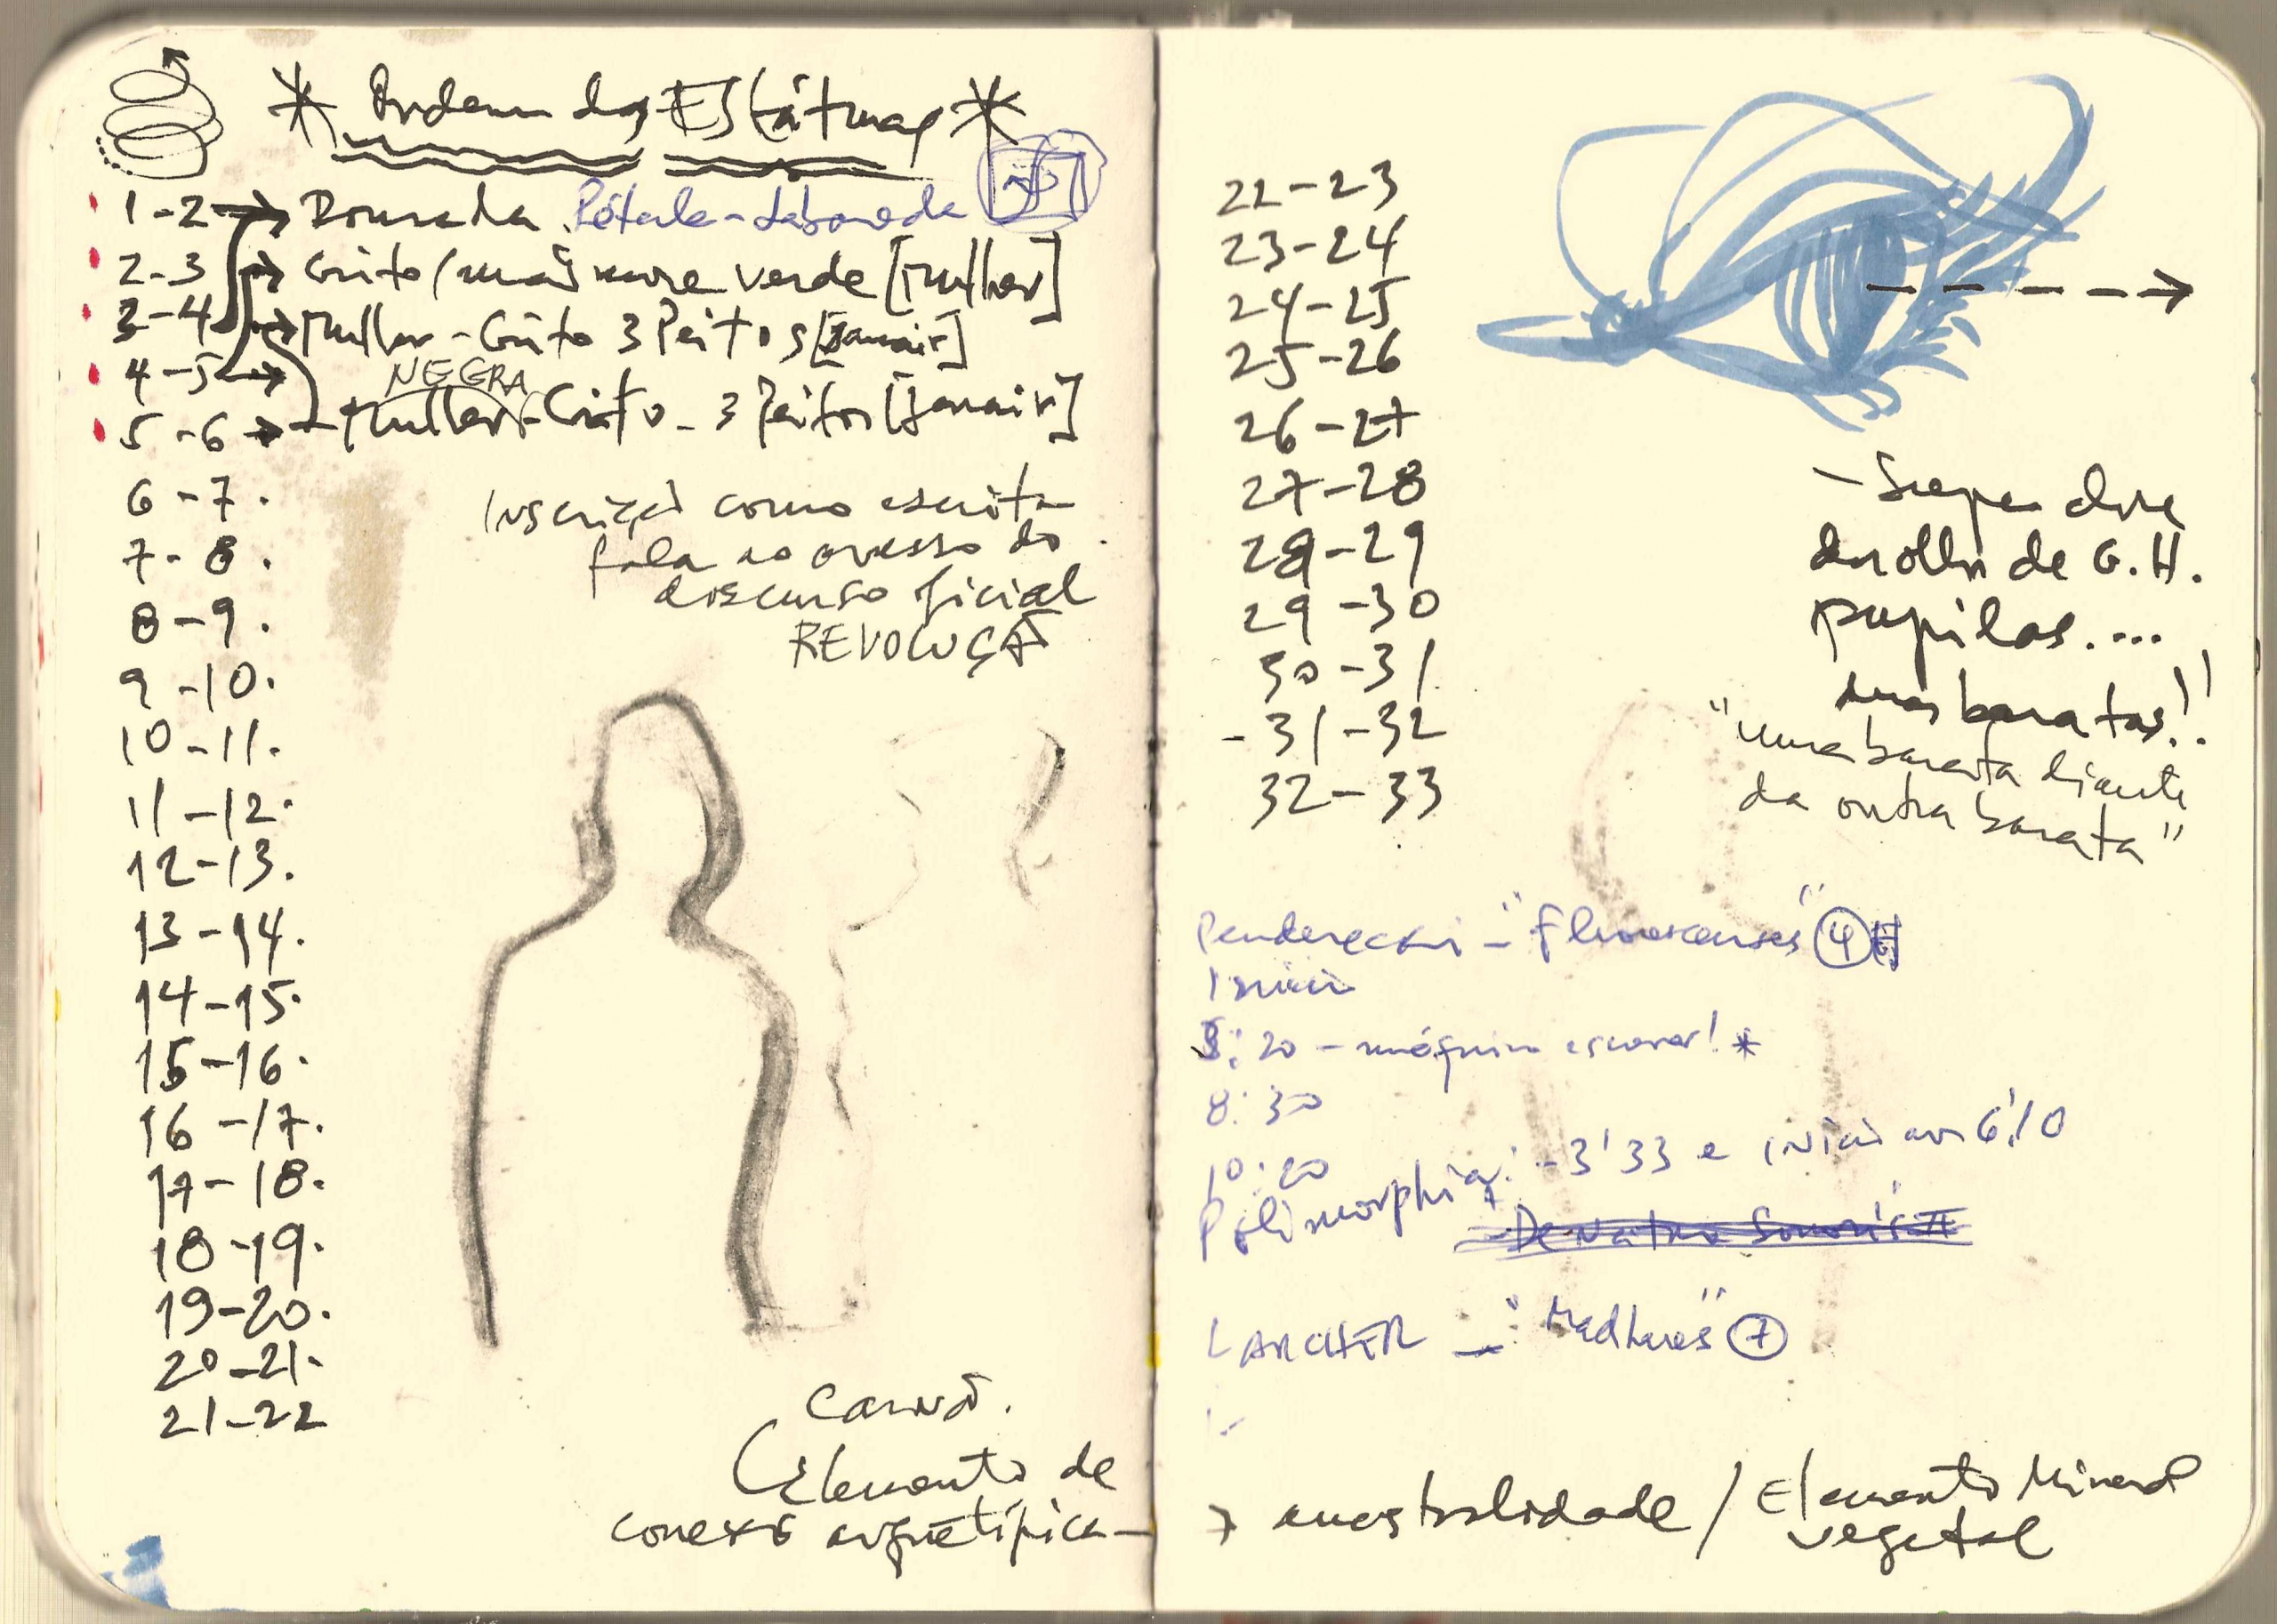 * Ordem das Estátuas *
1-2 → Dourada Pétala-Labareda
2-3 → Grito/ verde [Mulher]
3-4 → Mulher-Grito 3 Peitos [Janair]
4-5 →
NEGRA
5-6 → Mulher-Grito-3 Peitos [Janair]
6-7.
7-8.
8-9.
9-10.
10-11.
11-12.
12-13.
13-14.
14-15.
15-16.
16-17.
17-18.
18-19.
19-20.
20-21.
21-22
Inscrição como escrita
fala ao avesso do
discurso oficial
REVOLUÇÃO
Carvão.
Elemento de
conexão arquetípica -
22-23
23-24
24-25
25-26
26-27
27-28
28-29
29-30
30-31
-31-32
32-33
dos olhos de G.H.
pupilas....
duas baratas!!
"uma barata diante
da outra barata"
Penderecki - "Fluorescenses" 4
Início
8:20 - máquina escrever! *
8:30
10:20
Polimorphia: - 3'33 e início aos 6'10
De Natura Sonoris II
LARCHER - "Madhares" 7
→ ancestralidade / Elemento Mineral
vegetal